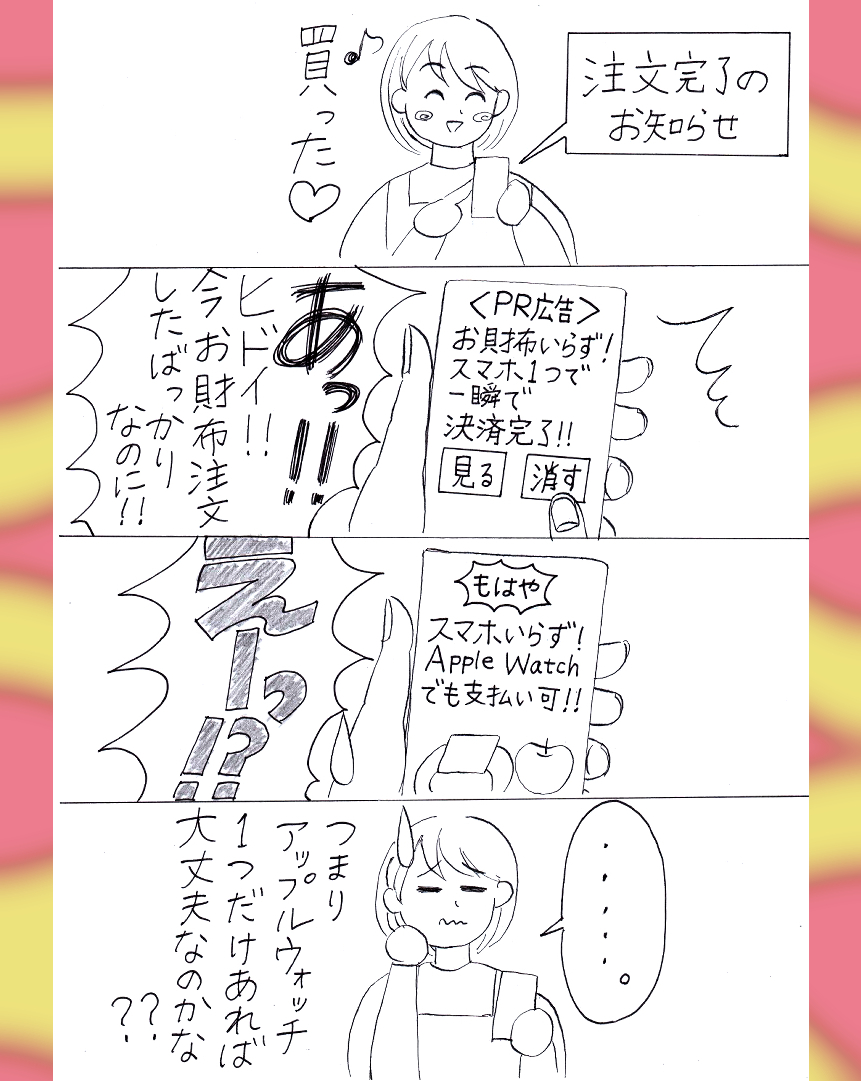 注文完了の
お知らせ
買った♡
<PR広告>
お財布いらず!
スマホ1つで
一瞬で
決済完了!!
見る
消す
あっ!!
ヒドイ!!
今お財布注文
したばっかり
なのに!!
もはや
スマホいらず!
Apple Watch
でも支払い可!!
えーっ!?
・・・・・。
つまり
アップルウォッチ
1つだけあれば
大丈夫なのかな
??